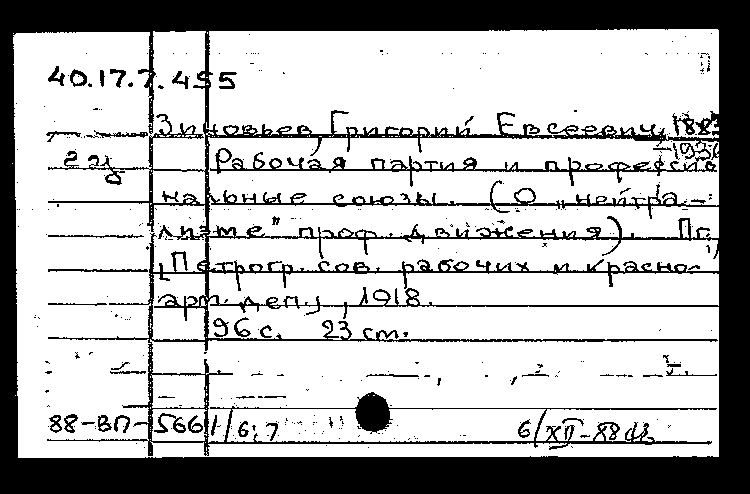 40.17.7.455
Зиновьев, Григорий Евсеевич, 1883
-1936
2 эз Рабочая партия и професcио
нальные союзы. (О „нейтра-
лизме" проф. движения). Пг.,
[Петрогр. сов. рабочих и красно-
арм. деп.], 1918.
96 с. 23 см.
88-ВП-5661/6;7 6/XII-88